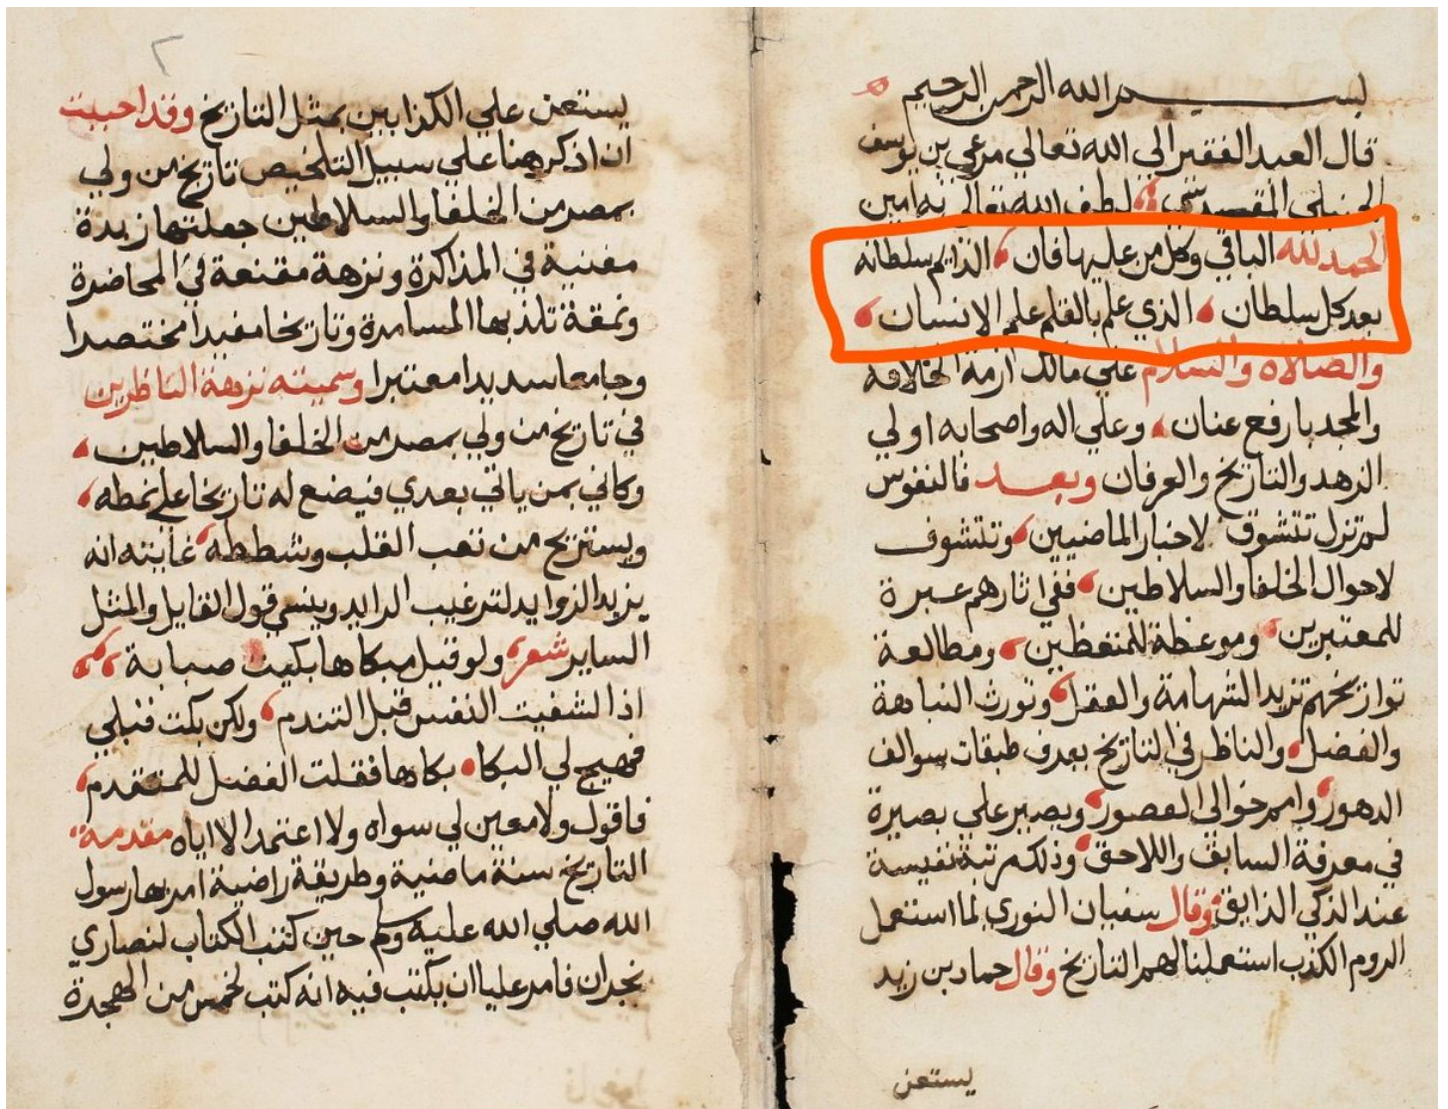 بسم الله الرحمن الرحيم
قال العبد الفقير الي الله تعالي مرعي بن يوسف
الحنبلي المقدسي لطف الله تعالي به امين
الحمد لله الباقي وكل من عليها فان الدايم سلطانه
بعد كل سلطان الذي علم بالقلم علم الانسان
والصلاه والسلام علي مالك ازمة الخلافه
والمجد بارفع عنان وعلي اله واصحابه اولي
الزهد والتاريخ والعرفان وبعد فالنفوس
لم تزل تتشوق لاخبار الماضيين وتتشوف
لاحوال الخلفا والسلاطين ففي اثارهم عبرة
للمعتبرين وموعظة للمتعظين ومطالعة
تواريخهم تزيد الشهامة والعقل وتورث النباهة
والفضل والناظر في التاريخ يعرف طبقات سوالف
الدهور وامم خوالي العصور ويصير علي بصيرة
في معرفة السابق واللاحق وذلك مرتبة نفيسة
عند الذكي الذايق وقال سفيان الثوري لما استعمل
الروم الكذب استعملنا لهم التاريخ وقال حماد بن زيد
يستعن
٢
يستعن علي الكذابين بمثل التاريخ وقد احببت
ان اذكر هنا علي سبيل التلخيص تاريخ من ولي
بمصر من الخلفا والسلاطين جعلتها زبدة
مغنية في المذاكرة ونزهة مقنعة في المحاضرة
ونمقة تلذ بها المسامرة وتاريخا مفيدا مختصرا
وجامعا سديدا معتبرا وسميته نزهة الناظرين
في تاريخ من ولي بمصر من الخلفا والسلاطين
وكاني بمن ياتي بعدي فيضع له تاريخا علي نمطه
ويستريح من تعب القلب وشططه غايته انه
يزيد الزوايد لترغيب الرايد وينسي قول القايل والمثل
الساير شعر ولو قبل مبكاها بكيت صبابة
اذا لشفيت النفس قبل التندم ولكن بكت قبلي
فهيج لي البكا بكاها فقلت الفضل للمتقدم
فاقول ولا معين لي سواه ولا اعتمد الا اياه مقدمة
التاريخ سنة ماضية وطريقة راضية امر بها رسول
الله صلي الله عليه وسلم حين كتب الكتاب لنصاري
نجران فامر عليا ان يكتب فيه انه كتب لخمس من الهجرة